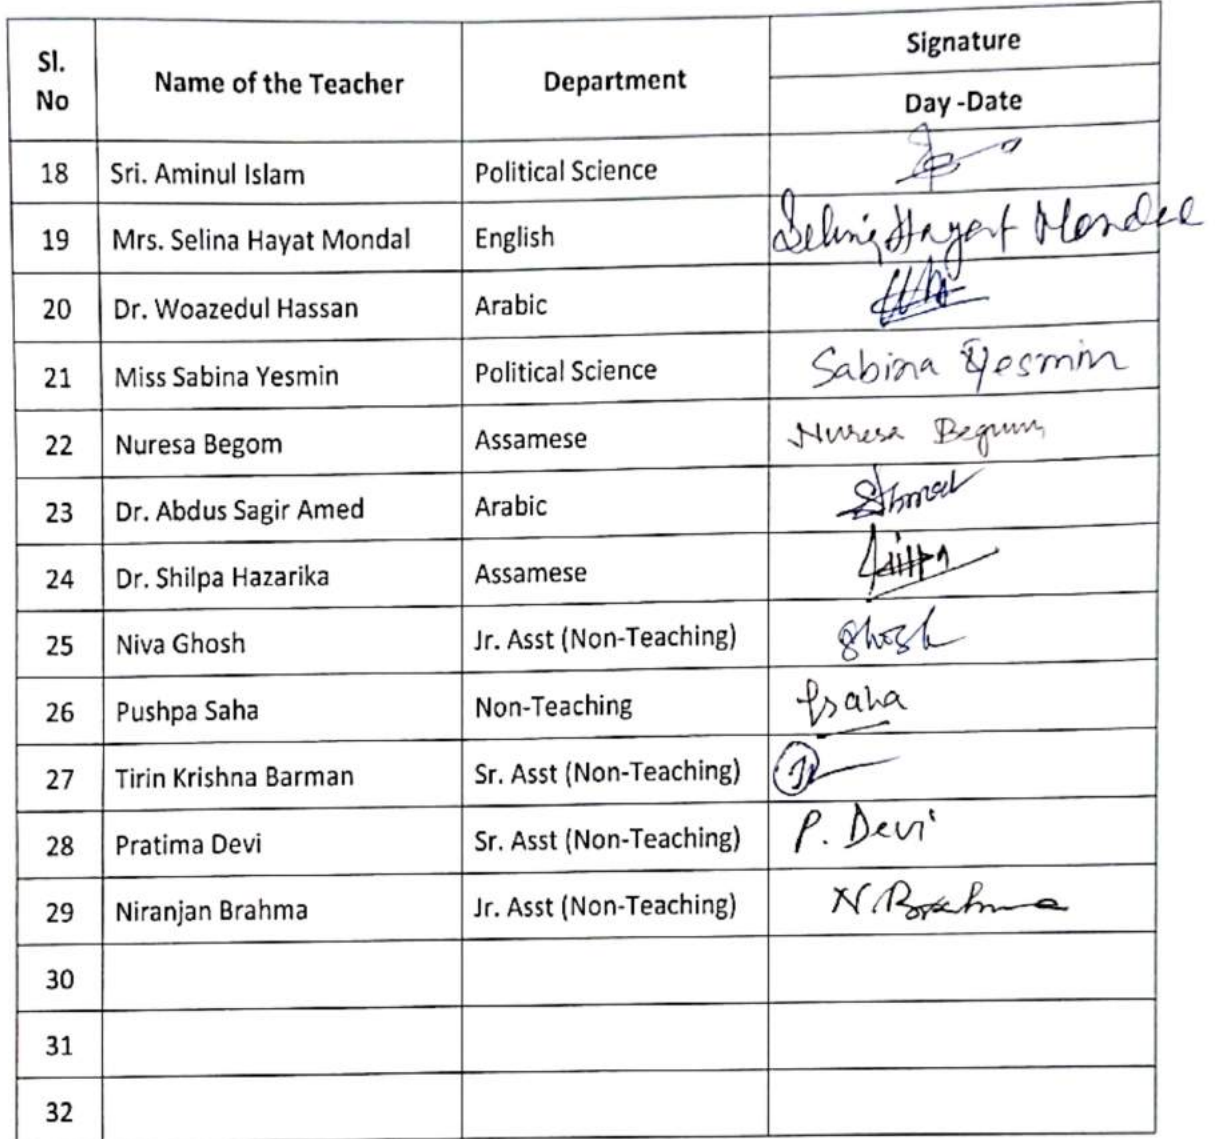 Sl. No Name of the Teacher Department Signature
Day -Date
18 Sri. Aminul Islam Political Science
19 Mrs. Selina Hayat Mondal English Selina Hayat Mondal
20 Dr. Woazedul Hassan Arabic
21 Miss Sabina Yesmin Political Science Sabina Yesmin
22 Nuresa Begom Assamese Nuresa Begum
23 Dr. Abdus Sagir Amed Arabic
24 Dr. Shilpa Hazarika Assamese
25 Niva Ghosh Jr. Asst (Non-Teaching) Ghosh
26 Pushpa Saha Non-Teaching Psaha
27 Tirin Krishna Barman Sr. Asst (Non-Teaching)
28 Pratima Devi Sr. Asst (Non-Teaching) P. Devi
29 Niranjan Brahma Jr. Asst (Non-Teaching) N. Brahma
30
31
32